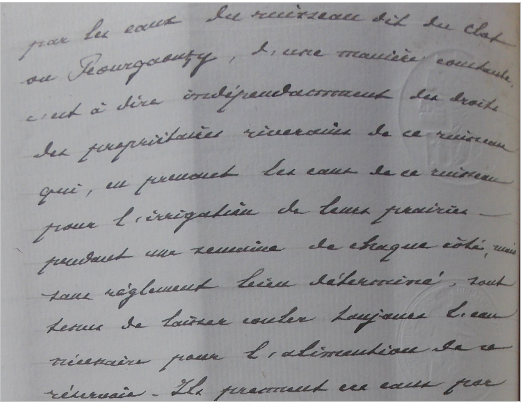 par les eaux du ruisseau dit du clot
ou , d'une manière constante,
c'est à dire indépendamment des droits
des propriétaires riverains de ce ruisseau
qui, en prenant les eaux de ce ruisseau
pour l'irrigation de leurs prairies -
pendant une semaine de chaque côté, mais
sans réglement bien déterminé, sont
tenus de laisser couler toujours l'eau
nécessaire pour l'alimention de ce
réservoir - Ils prennent ces eaux par